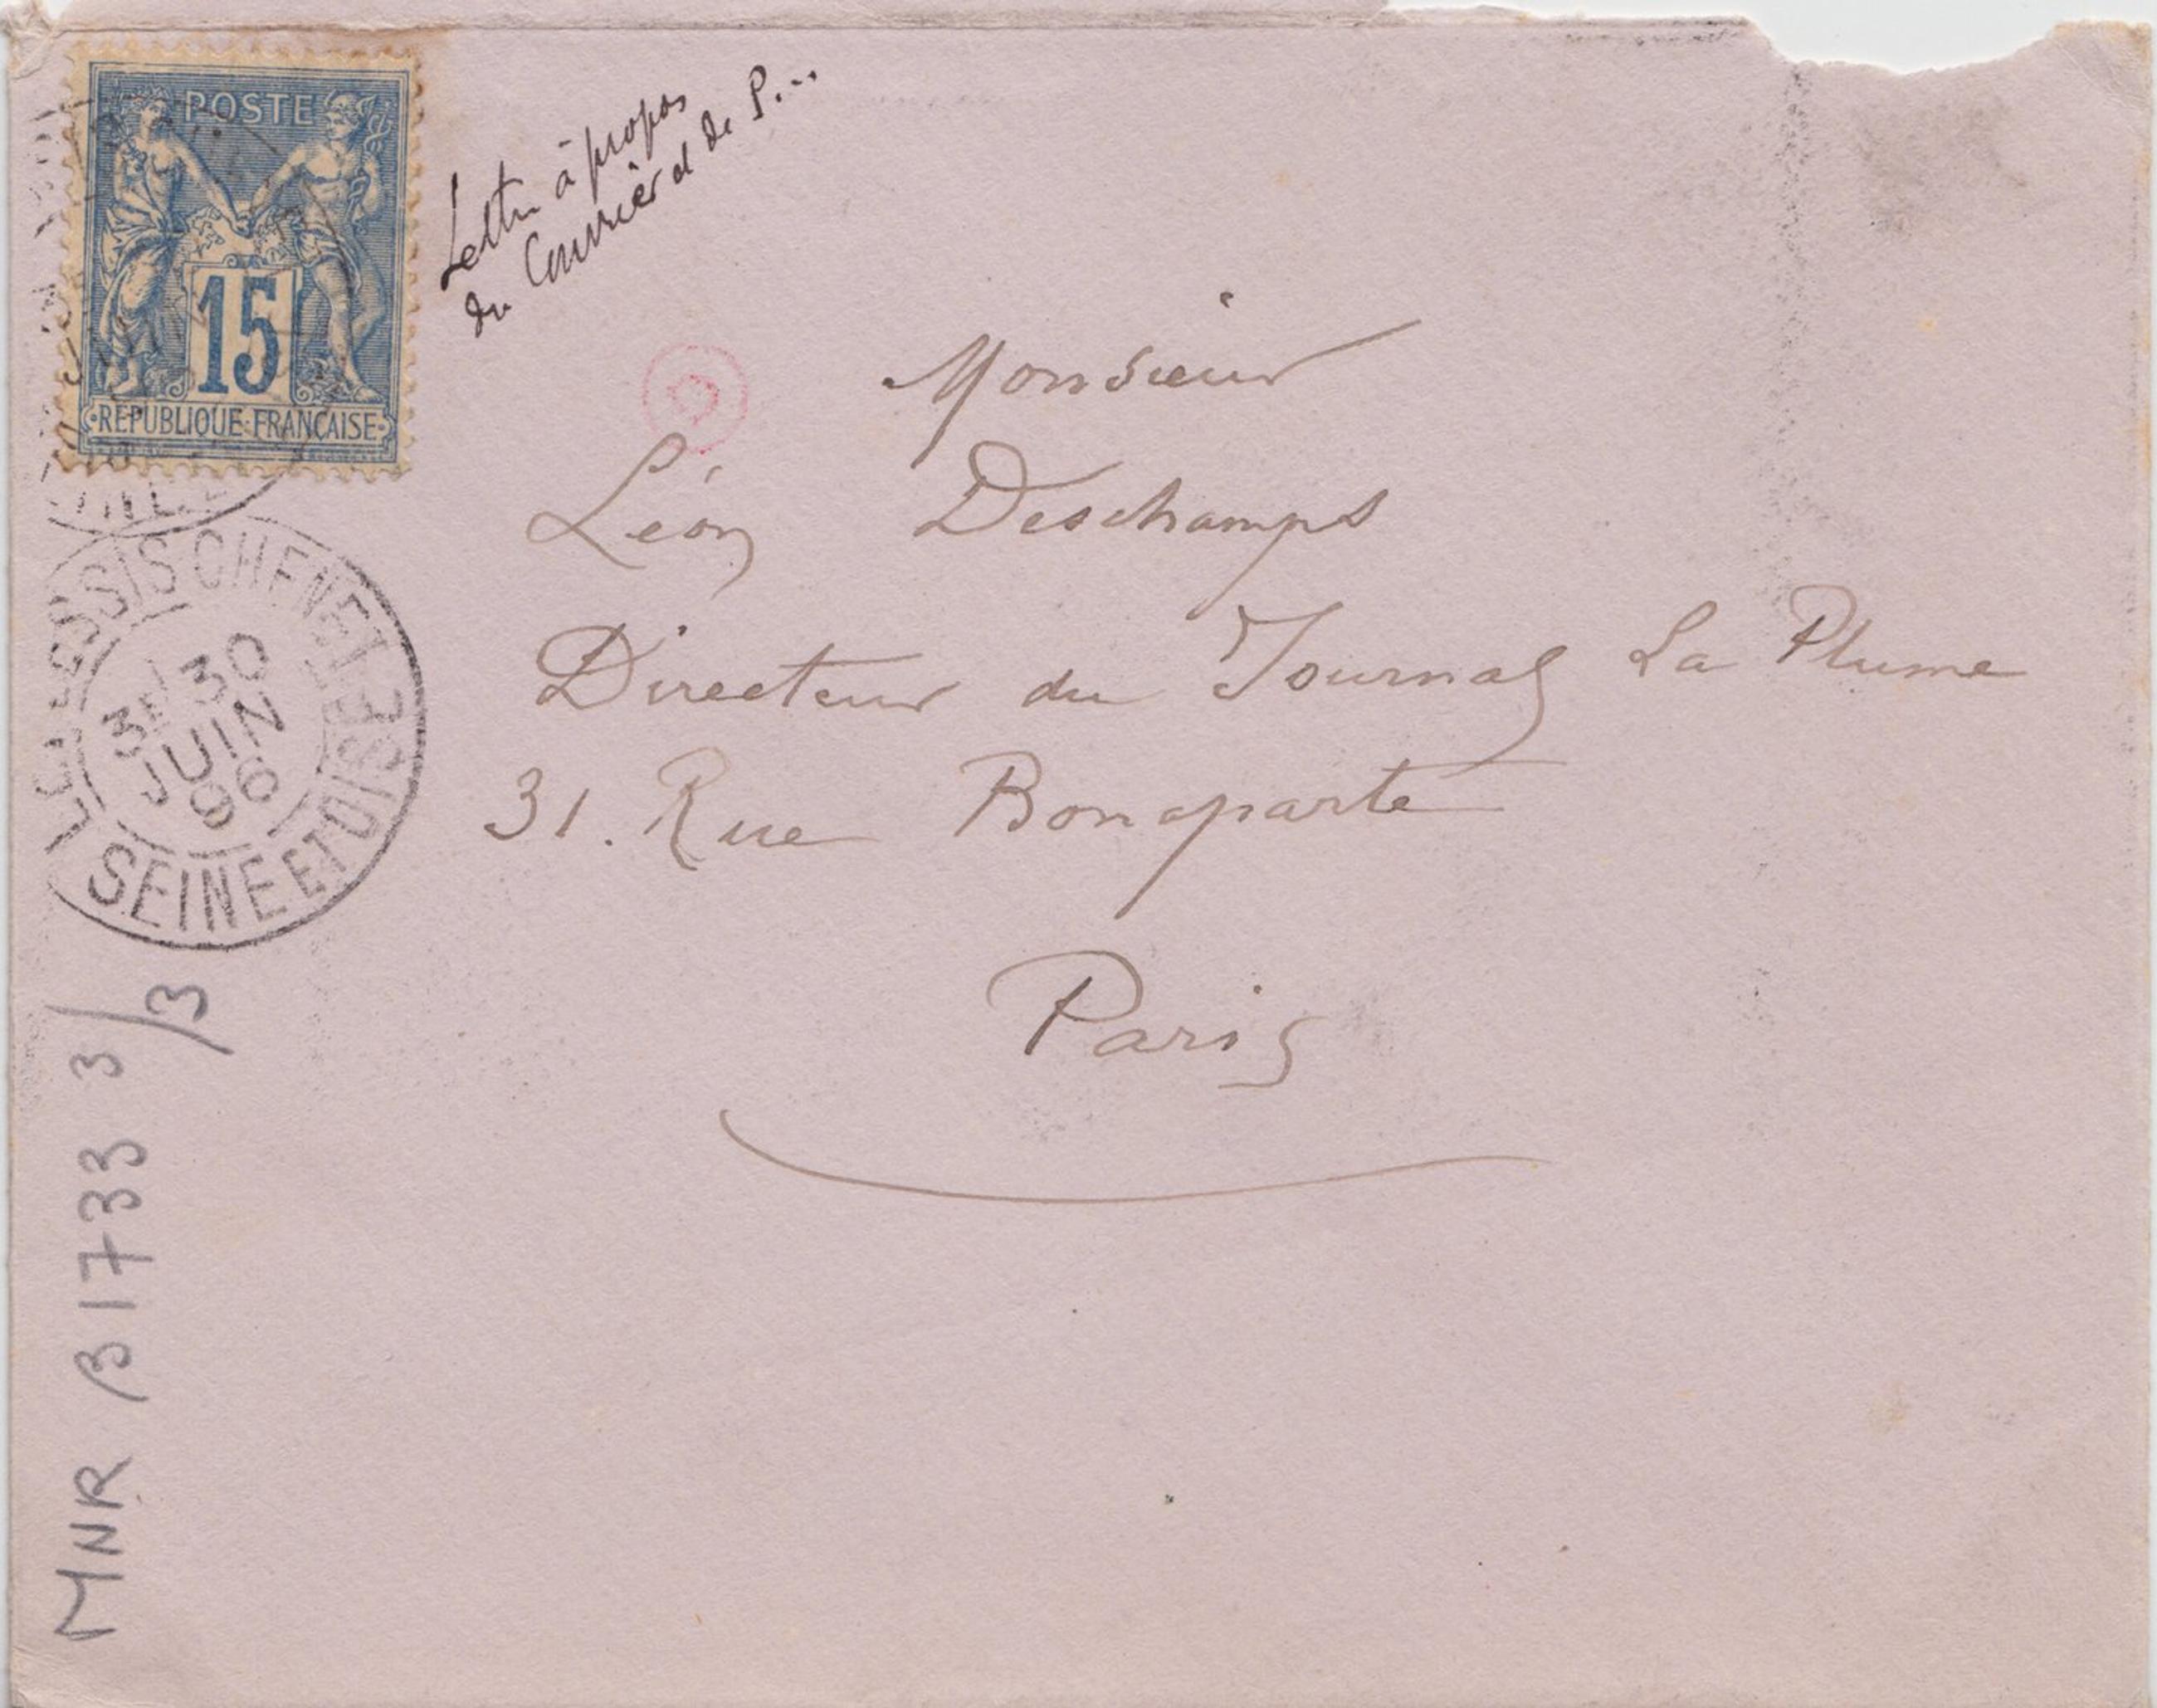 POSTE
15
RÉPUBLIQUE FRANÇAISE
Lettre à propos
du Courrier et de P...
Monsieur
Léon Deschamps
Directeur du Journal La Plume
31. Rue Bonaparte
Paris
LE PLESSIS CHENET
3E 30
JUIN
96
SEINE ET OISE
MNR B1733 3/3